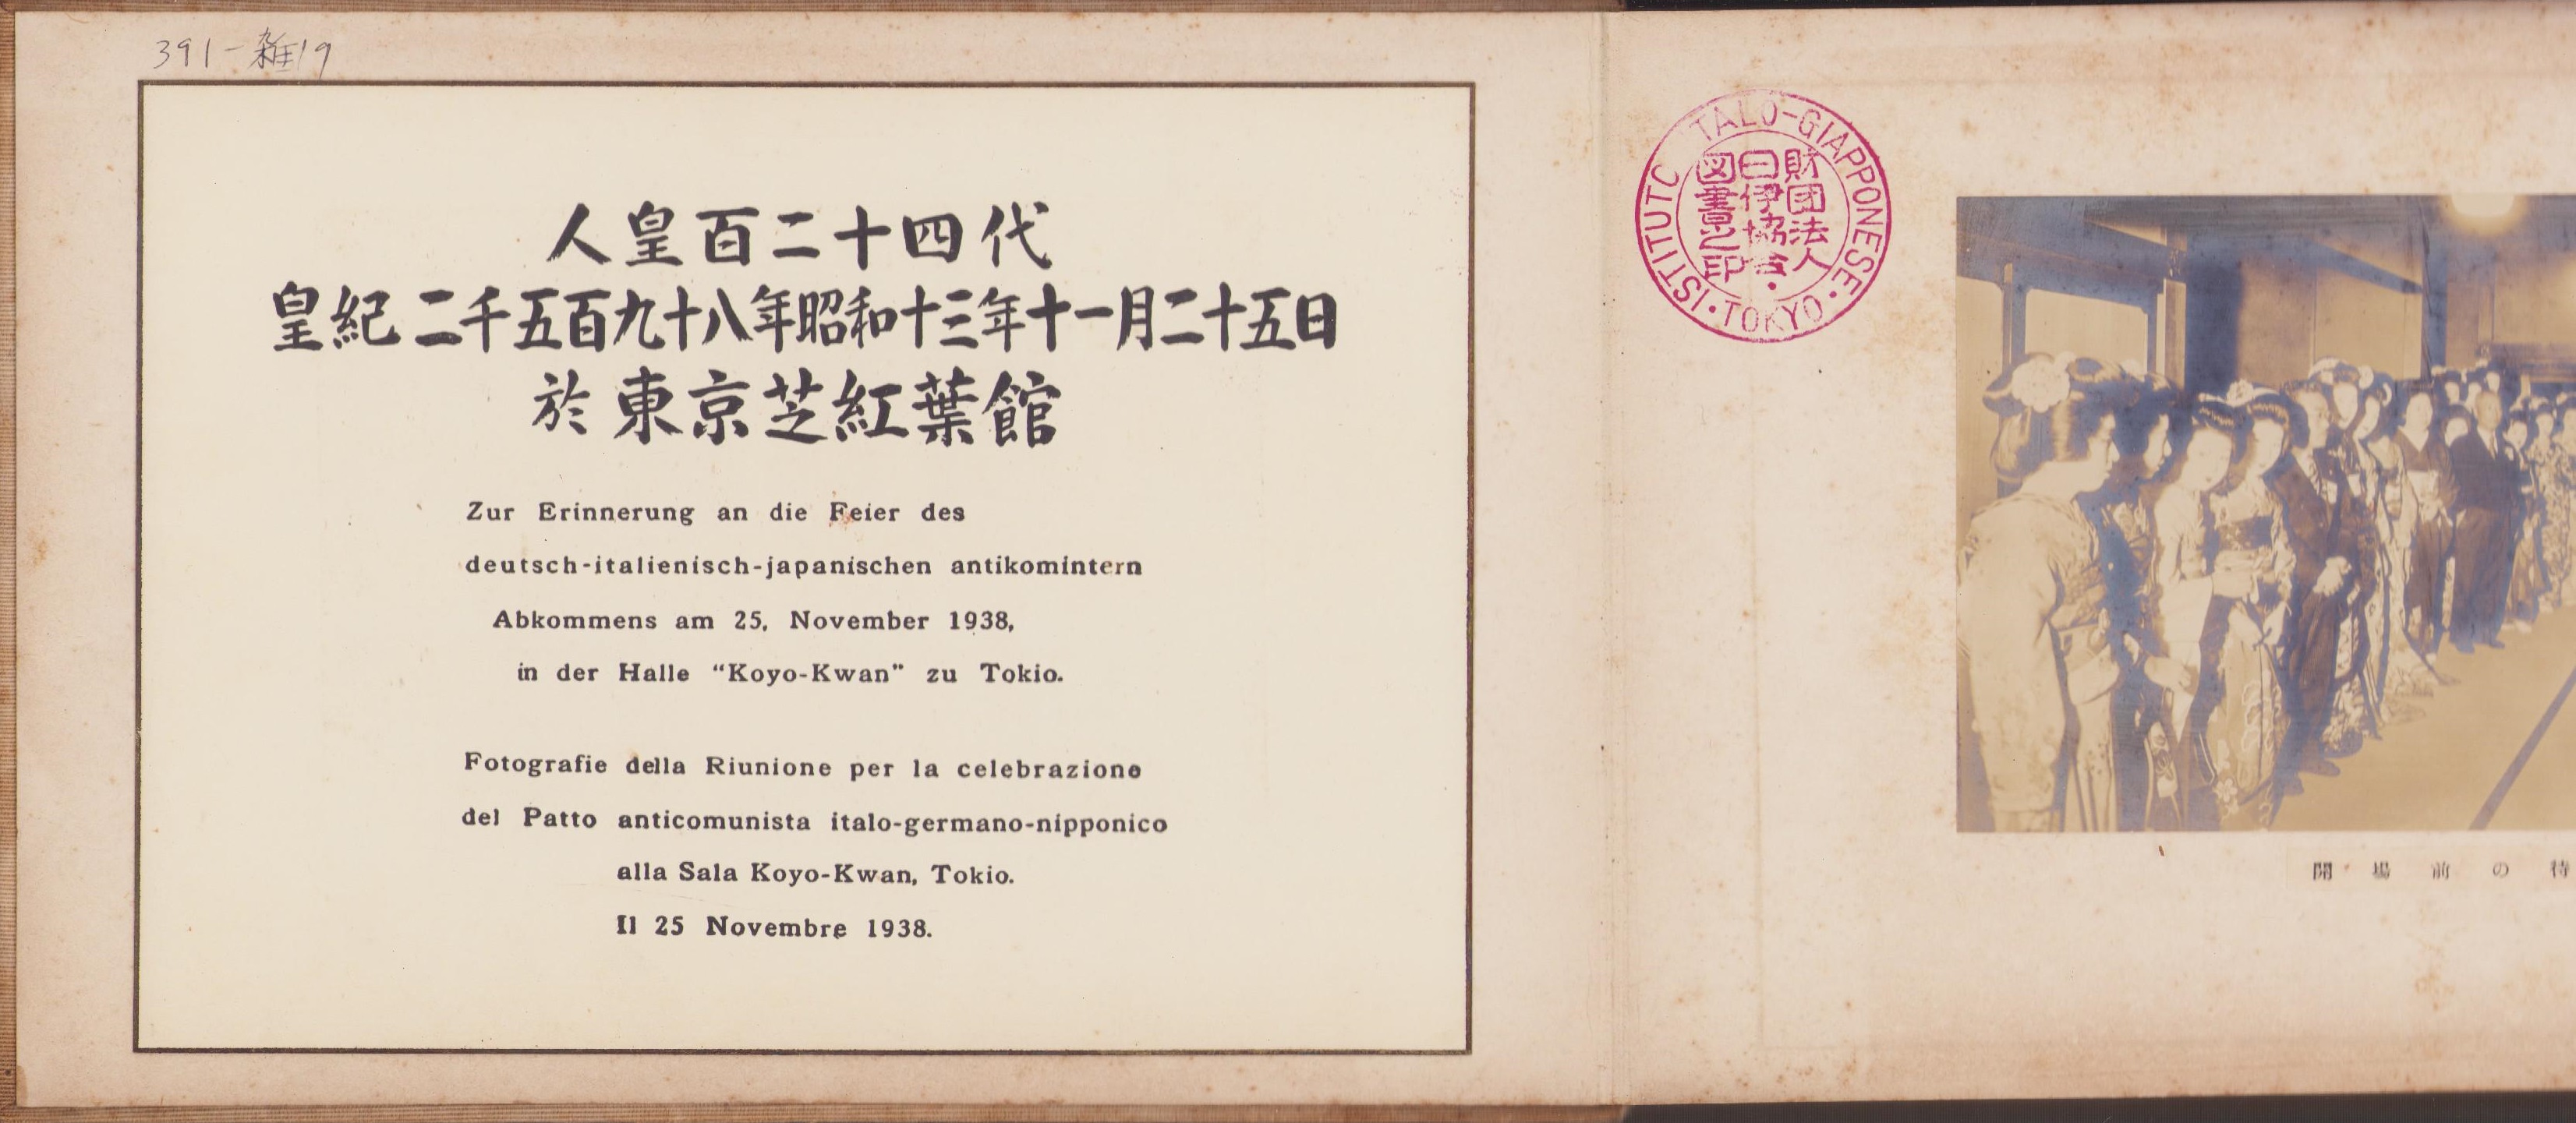 391-雑19
人皇百二十四代
皇紀二千五百九十八年昭和十三年十一月二十五日
於東京芝紅葉館
Zur Erinnerung an die Feier des
deutsch-italienisch-japanischen antikomintern
Abkommens am 25. November 1938,
in der Halle “Koyo-Kwan” zu Tokio.
Fotografie della Riunione per la celebrazione
del Patto anticomunista italo-germano-nipponico
alla Sala Koyo-Kwan, Tokio.
Il 25 Novembre 1938.
ISTITUTO ITALO-GIAPPONESE・TOKYO・
財団法人
日伊協会
図書之印
開場前の待